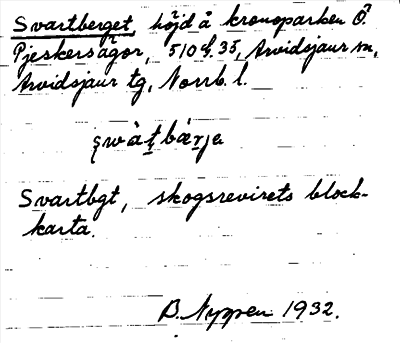 Svartberget, höjd å kronoparken Ö.
Pjeskersågor, 510 35, Arvidsjaur sn,
Arvidsjaur tg, Norrb. l.
Svartbgt, skogsrevirets block-
karta.
B. Nyppen 1932.